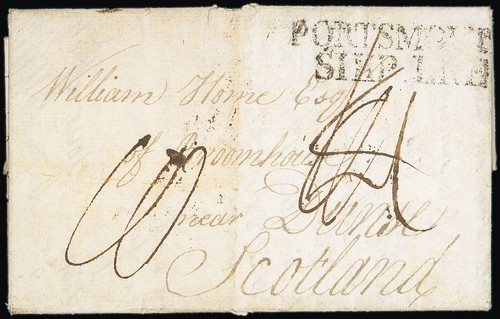 PORTSMOUTH
SHIP LRE
William Home Esqr
of Broomhouse
near Dunse
Scotland